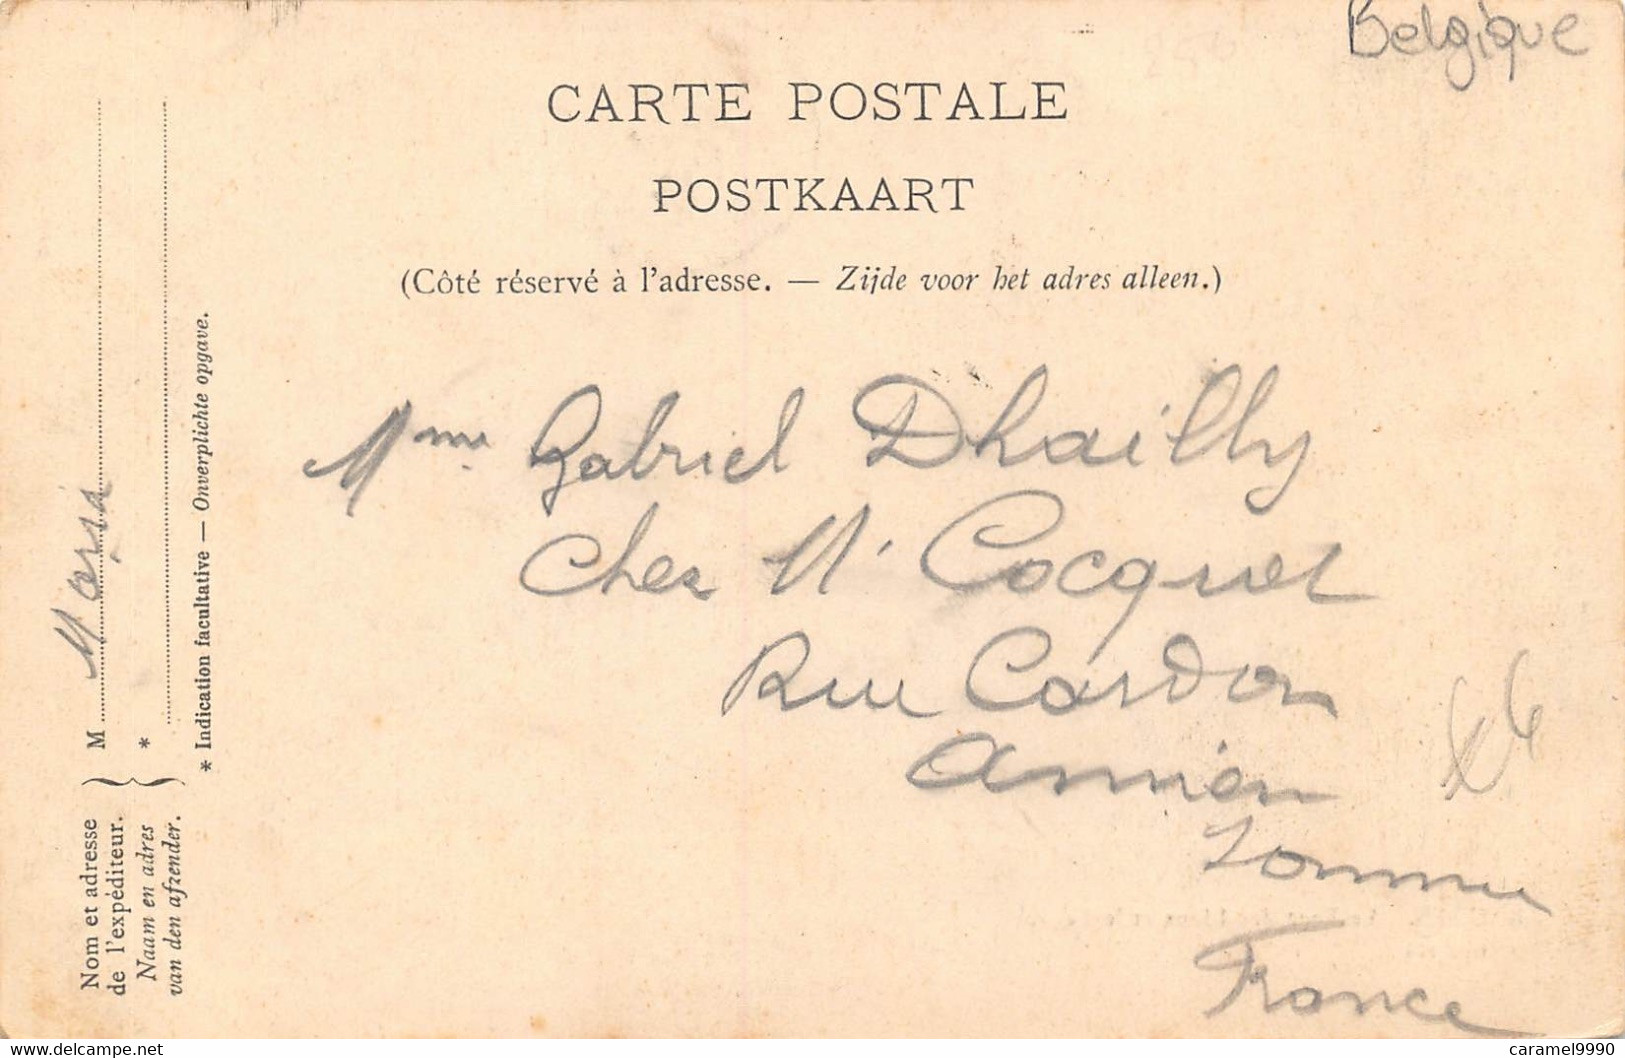 Belgique
CARTE POSTALE
POSTKAART
(Côté réservé à l'adresse. — Zijde voor het adres alleen.)
Mme Gabriel Dhailly
Chez Mr Cocquel
Rue Cardon
Amien
Somme
France
Nom et adresse
de l'expéditeur.
Naam en adres
van den afzender.
M
*
* Indication facultative — Onverplichte opgave.
caramel9990